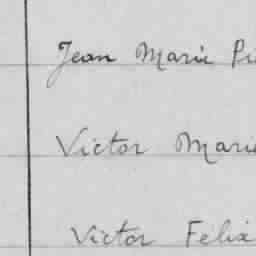 Jean Marie Pi
Victor Marie
Victor Félix